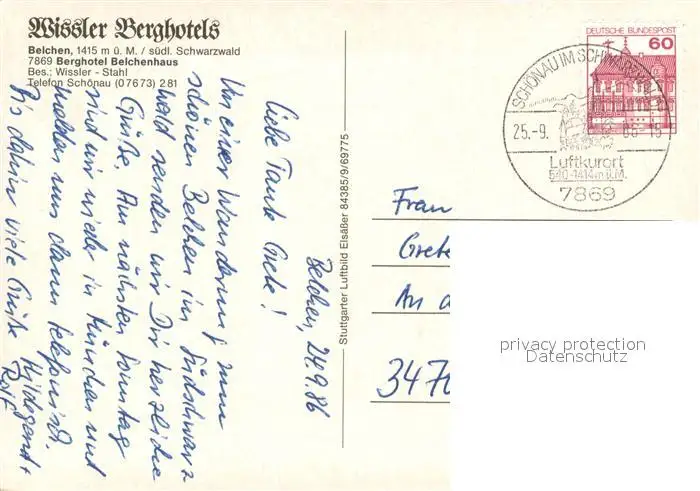 Wissler Berghotels
Belchen, 1415 m ü. M. / südl. Schwarzwald
7869 Berghotel Belchenhaus
Bes.: Wissler - Stahl
Telefon Schönau (07673) 2 81
Belchen, 24.9.86
Liebe Tante Grete!
Von einer Wanderung zum
schönen Belchen im Südschwarz-
wald senden wir Dir herzliche
Grüße. Am nächsten Sonntag
sind wir wieder in München und
melden uns dann telefonisch.
Bis dahin viele Grüße Hildegard +
Rolf
Stuttgarter Luftbild Elsäßer 84385/9/69775
DEUTSCHE BUNDESPOST
60
SCHÖNAU IM SCHWARZW
25.-9.
86-15
Luftkurort
540-1414m ü.M.
7869
Frau
Grete
An d
3470
privacy protection
Datenschutz